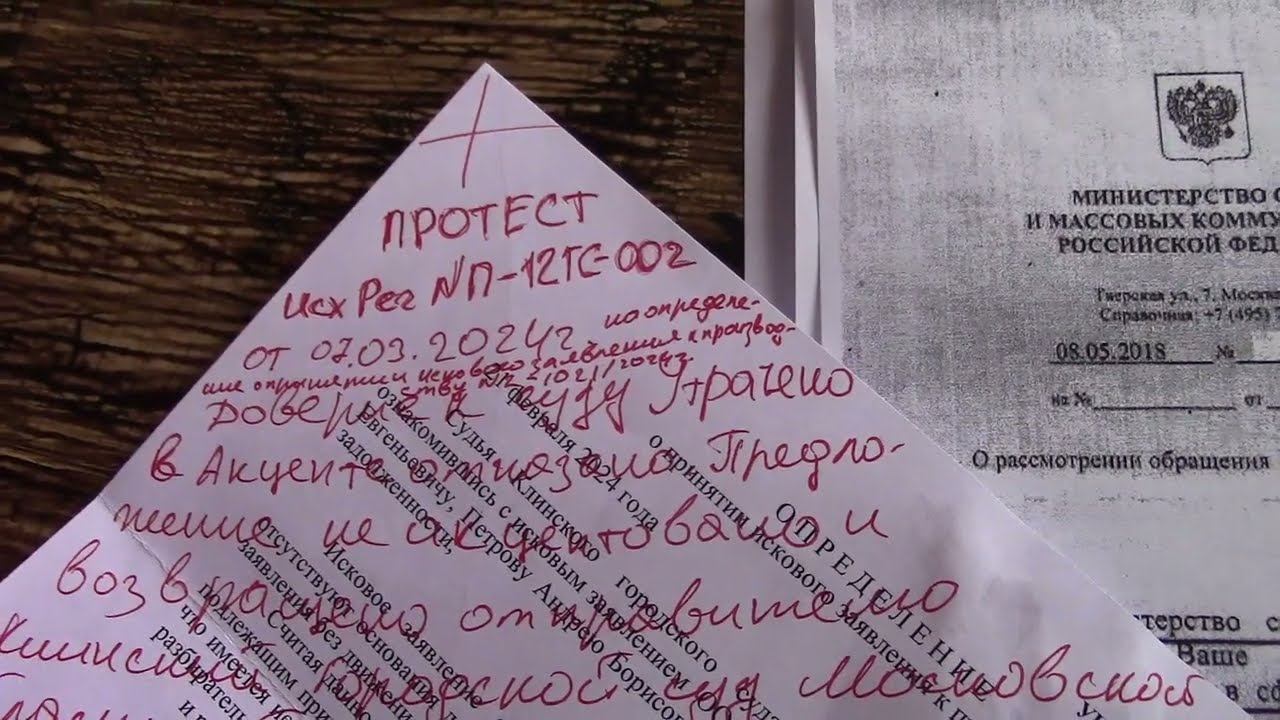 ПРОТЕСТ
исх Рег №П-12ГС-002
от 07.03.2024г по определе-
ние о принятии искового заявления к производ-
ству
Доверие к суду Утрачено
в Акцепте отказано Предло-
жение не акцептовано и
возвращено отправителю
Клинский городской суд Московской
О П Р Е Д Е Л Е Н И Е
о принятии искового заявления к
февраля 2024 года
Судья Клинского городского суда
ознакомившись с исковым заявлением
Евгеньевичу, Петрову Андрею Борисов
задолженности,
Исковое заявление
отсутствуют основания д
заявления без движени
Считая данно
подлежащим при
что имеется не
разбиратель
и р
МИНИСТЕРСТВО С
И МАССОВЫХ КОММУ
РОССИЙСКОЙ ФЕД
Тверская ул., 7, Москва
Справочная: +7 (495)
08.05.2018 №
на № от
О рассмотрении обращения
стерство с
Ваше
в сф